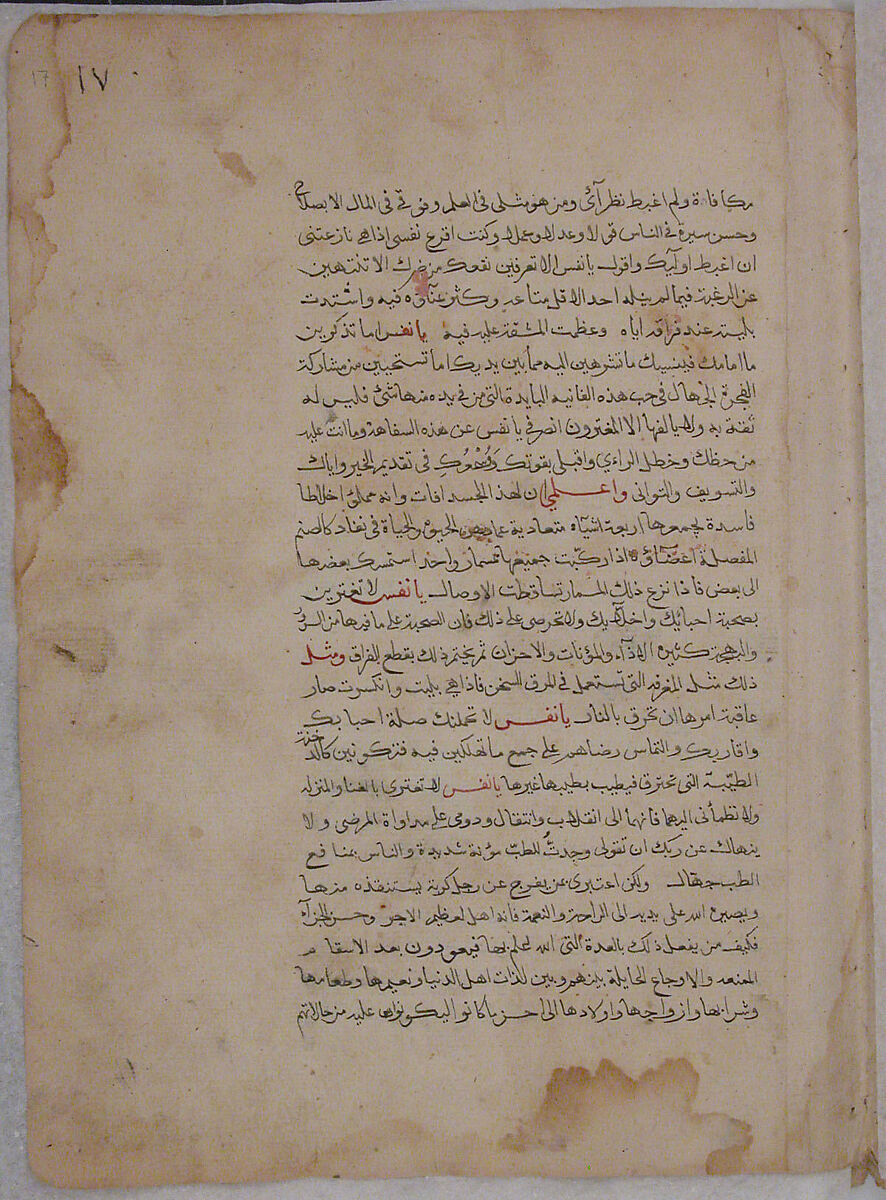 17 ١٧
مكافاة ولم اغبط نظرآئى ومن هو مثلى فى العلم وفوقى فى المال الا بصلاح
وحسن سيرة فى الناس قولا وعدلا وعملا وكنت اقرع نفسى اذا هى نازعتنى
ان اغبط اوليك واقول يا نفس الا تعرفين نفعك من ضرك الا تنتهين
عن الرغبة فيما لم ينله احد الا قل متاعه وكثر عنآوه فيه واشتدت
بليته عند فراقه اياه وعظمت المشقة عليه فيه يا نفس اما تذكرين
ما امامك فينسيك ما تشرهين اليه مما بين يديك اما تستحيين من مشاركة
الفجرة الجهال فى حب هذه الفانيه البايدة التى من فى يده منها شئ فليس له
ثقة به ولا يالفها الا المغترون انصرفى يا نفس عن هذه السفاهة وما انت عليه
من حظك وخطل الراءي واقبلى بقوتك فى تقديم الخير واياك
والتسويف والتوانى واعلمى ان لهذ الجسد افات وانه مملؤ اخلاطا
فاسدة يجمعها اربعة اشيآه متعادية والحياة فى نفاد كالصنم
المفصلة اعضآؤه اذا ركبت جميعها مسمار واحد استمسك بعضها
الى بعض فاذا نزع ذلك المسمار تساقطت الاوصال يا نفس لا تغترين
بصحبة احبائك واخلآيك ولا تحرصى على ذلك فان الصحبة على ما فيها من السرور
والبهجة كثيرة الاذآء والمؤنات والاحزان ثم يختم ذلك بقطع الفراق ومثل
ذلك مثل المغرفه التى تستعمل فى المرق السخن فاذا هى بليت وانكسرت صار
عاقبة امرها ان تحرق بالنار يا نفس لا تحملنك صلة احبابك
واقاربك والتماس رضاهم على جمع ما تهلكين فيه فتكونين كالدخنة
الطيبة التى تحترق فيطيب بطيبها غيرها يا نفس لا تغترى بالغنا والمنزله
ولا تطمأنى اليهما فانهما الى انقلاب وانتقال ودومى على مداواة المرضى ولا
ينهاك عن ربك ان تقولى وجدت للطب مؤنة شديدة والناس بمنافع
الطب جهال ولكن اعتبرى عن يفرج عن رجل كربة يستنقذه منها
ويصيره الله على يديه الى الراحة والنعمة فانه اهل لعظيم الاجر وحسن الجزآء
فكيف من يفعل ذلك بالعدة التى الله لعلم بها فيعودون بعد الاسقام
والاوجاع الحايلة بينهم وبين لذات اهل الدنيا ونعيمها وطعامها
وشرابها وازواجها واولادها الى احسن ما كانوا عليه من حالاتهم